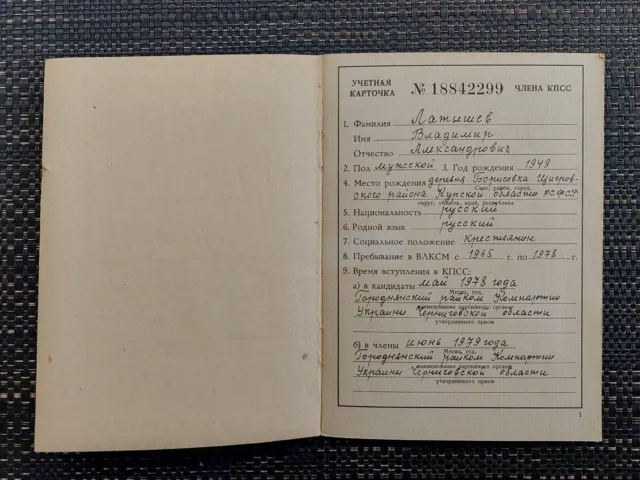 УЧЕТНАЯ КАРТОЧКА № 18842299 ЧЛЕНА КПСС
1. Фамилия Латышев
Имя Владимир
Отчество Александрович
2. Пол мужской 3. Год рождения 1949
4. Место рождения деревня Борисовка Щигров-
Село, район, город,
ского района Курской области РСФСР
округ, область, край, республика
5. Национальность русский
6. Родной язык русский
7. Социальное положение крестьянин
8. Пребывание в ВЛКСМ с 1965 г. по 1978 г.
9. Время вступления в КПСС:
а) в кандидаты май 1978 года
Месяц, год,
Городнянский райком Компартии
наименование партийного органа,
Украины Черниговской области
утвердившего прием
б) в члены июнь 1979 года
Месяц, год,
Городнянский райком Компартии
наименование партийного органа,
Украины Черниговской области
утвердившего прием
1